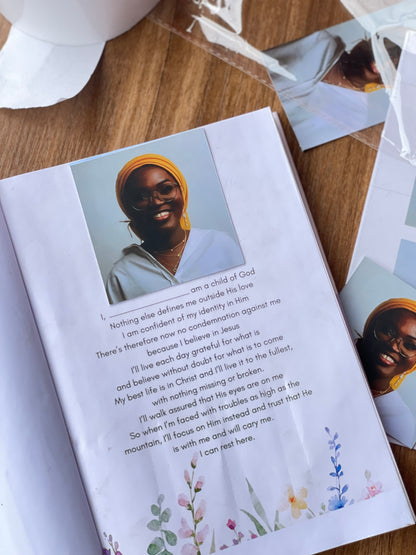 I, ____________________ am a child of God
Nothing else defines me outside His love
I am confident of my identity in Him
There's therefore now no condemnation against me
because I believe in Jesus
I'll live each day grateful for what is
and believe without doubt for what is to come
My best life is in Christ and I'll live it to the fullest,
with nothing missing or broken.
I'll walk assured that His eyes are on me
So when I'm faced with troubles as high as the
mountain, I'll focus on Him instead and trust that He
is with me and will cary me.
I can rest here.